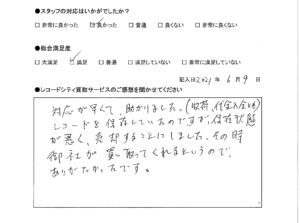 ●スタッフの対応はいかがでしたか？
□非常に良かった ☑良かった □普通 □良くない □非常に良くない
●総合満足度
□大満足 ☑満足 □普通 □満足していない □非常に満足していない
記入日2021年6月9日
●レコードシティ買取サービスのご感想を聞かせてください
対応が早くて、助かりました。(収荷、代金入金も)
レコードを保存していたのですが、保存状態
が悪く、売却することにしました。その時
御社が買い取ってくれるというので、
ありがたかったです。